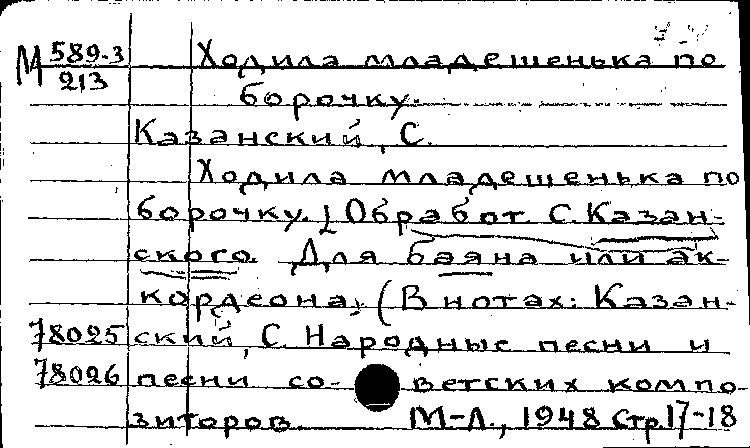 М 589-3/213 Ходила младешенька по
борочку.
Казанский, С.
Ходила младешенька по
борочку. [Обработ. С. Казан-
ского. Для баяна или ак-
кордеона, (В нотах: Казан-
78025 ский, С. Народные песни и
78026 песни со- ветских компо-
зиторов. М-Л., 1948 стр 17-18